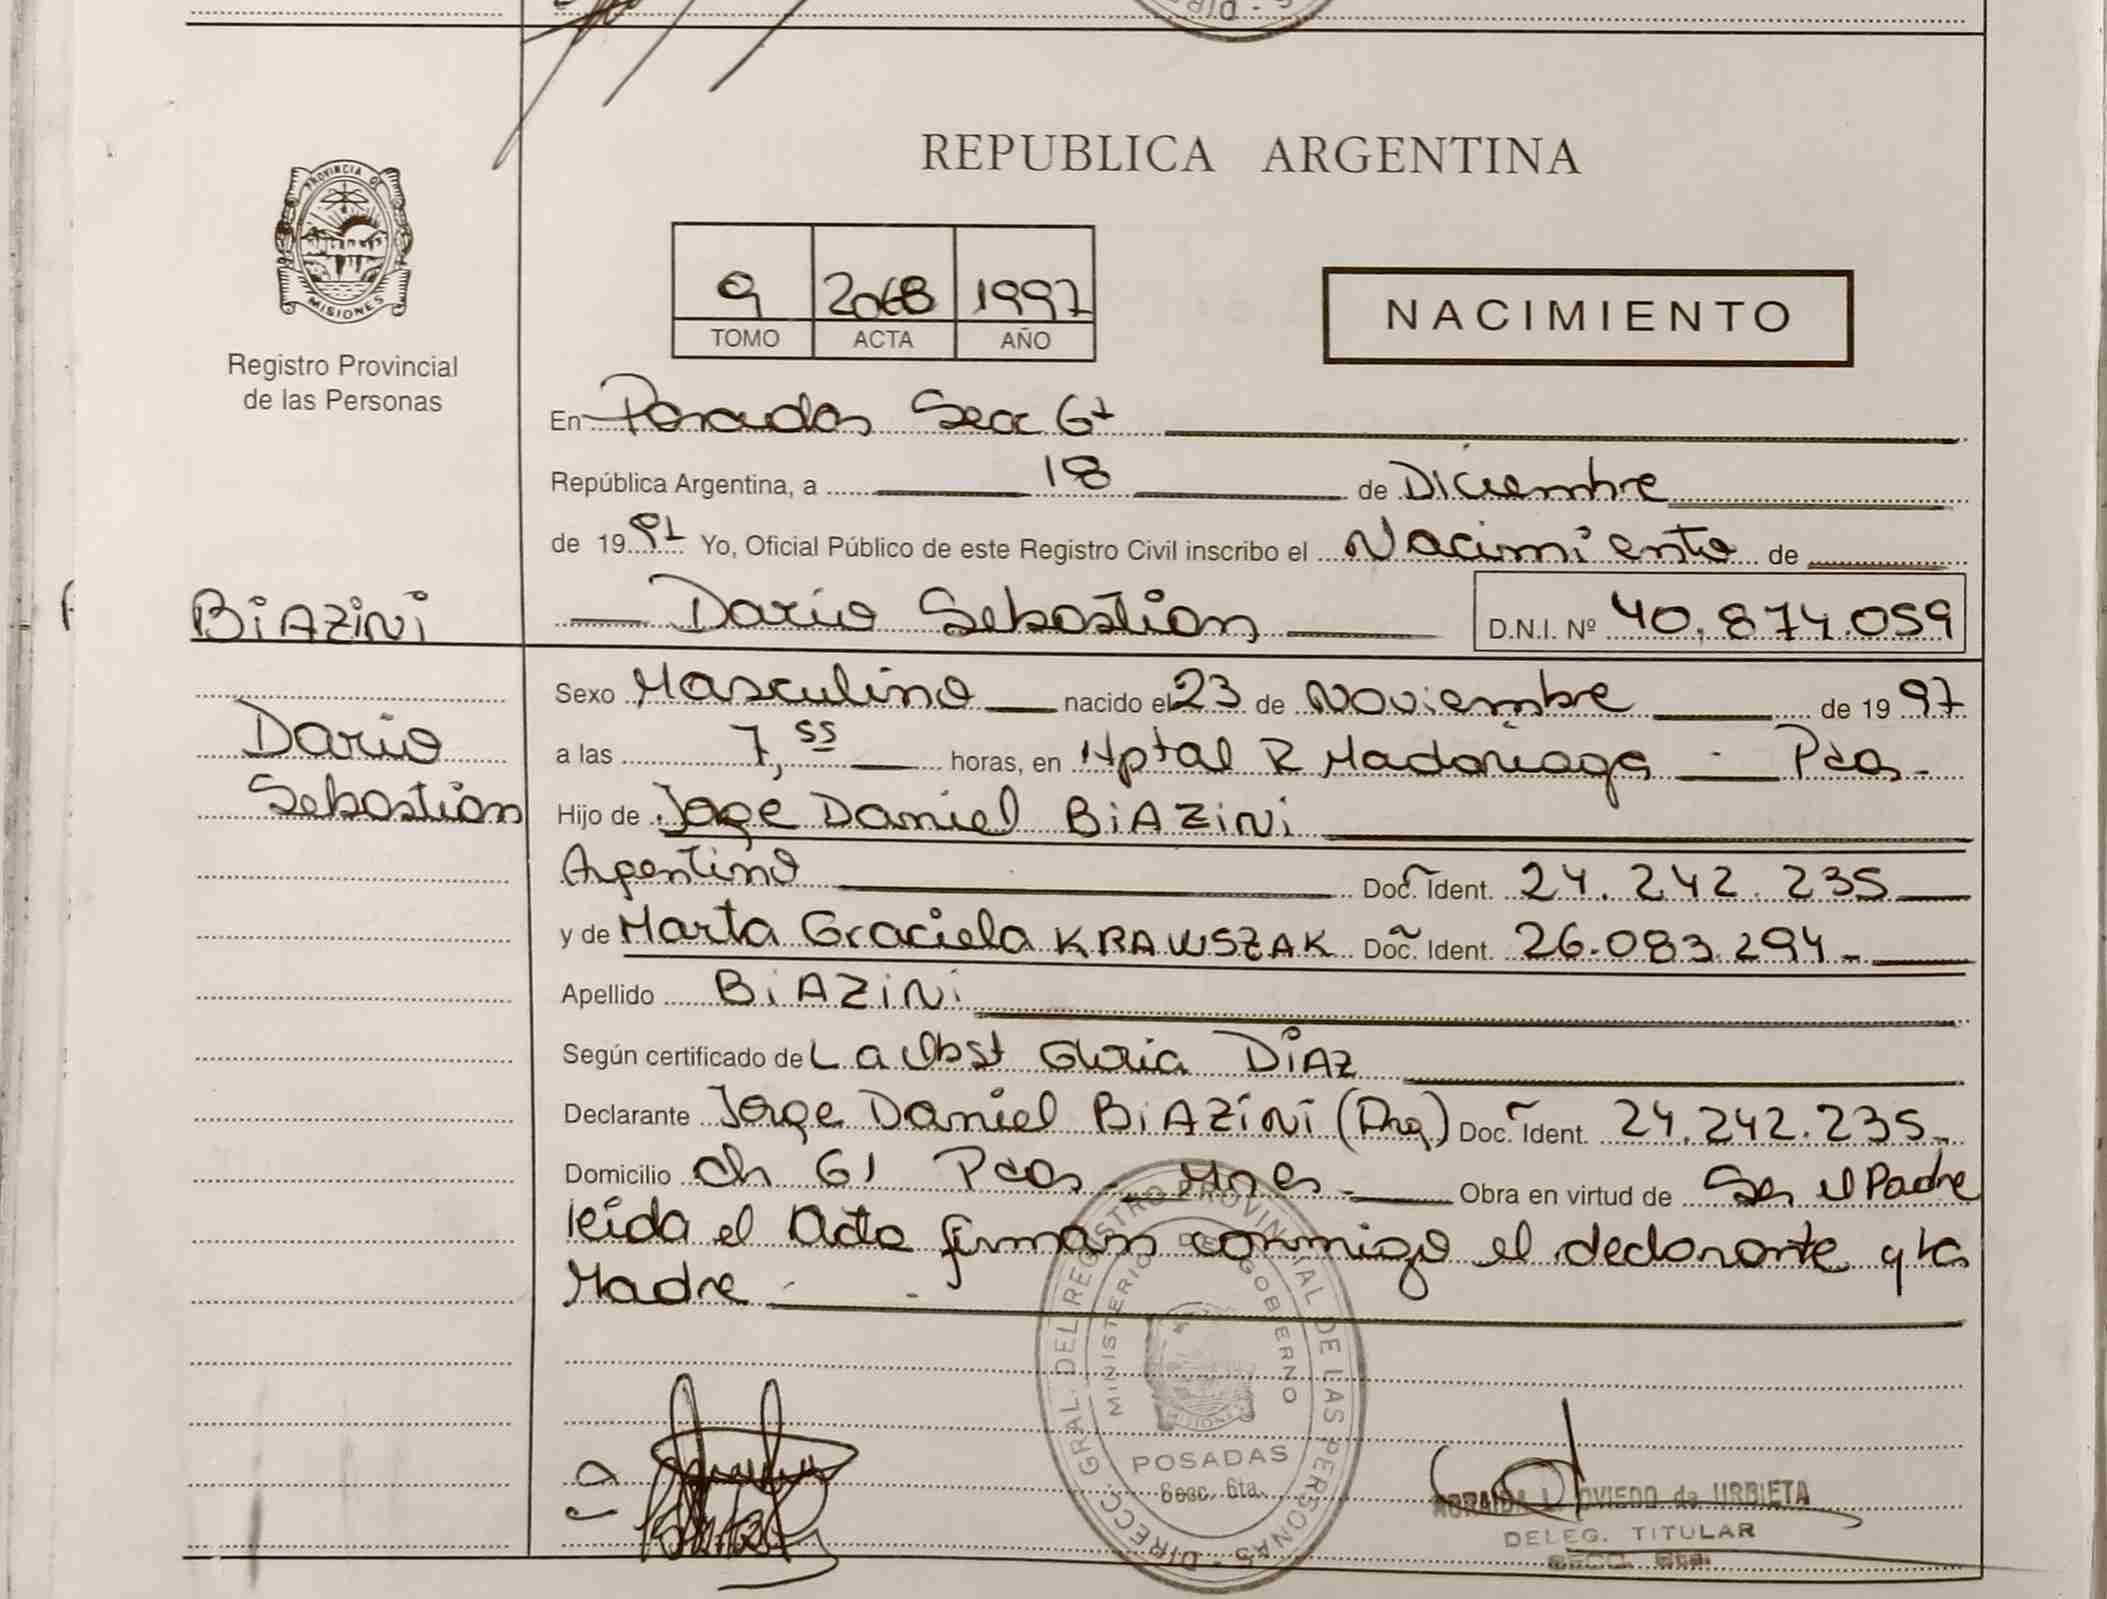 REPUBLICA ARGENTINA
PROVINCIA DE
MISIONES
Registro Provincial
de las Personas
9 2068 1997
TOMO ACTA AÑO
NACIMIENTO
En Posadas Secc 6ta
República Argentina, a 18 de Diciembre
de 1997 Yo, Oficial Público de este Registro Civil inscribo el Nacimiento de
BiAZiNi
Dario Sebastian D.N.I. Nº 40.874.059
Sexo Masculino nacido el 23 de Noviembre de 1997
Dario
Sebastian
a las 7,55 horas, en Hptal R Madariaga - Pdas-
Hijo de Jorge Daniel BiAZiNi
Argentino Doc. Ident. 24.242.235
y de Marta Graciela KRAWSZAK Doc. Ident. 26.083.294-
Apellido BiAZiNi
Según certificado de La Obst Gloria DiAZ
Declarante Jorge Daniel BiAZiNi (Arg) Doc. Ident. 24.242.235-
Domicilio ch 61 Pdas - Mnes - Obra en virtud de Ser el Padre
leida el Acta firman conmigo el declarante y la
Madre
DIRECC. GRAL. DEL REGISTRO PROVINCIAL DE LAS PERSONAS
MINISTERIO DE GOBERNO
MISIONES
POSADAS
Secc. 6ta.
L. OVIEDO de URBIETA
DELEG. TITULAR
SECC. 6ta.